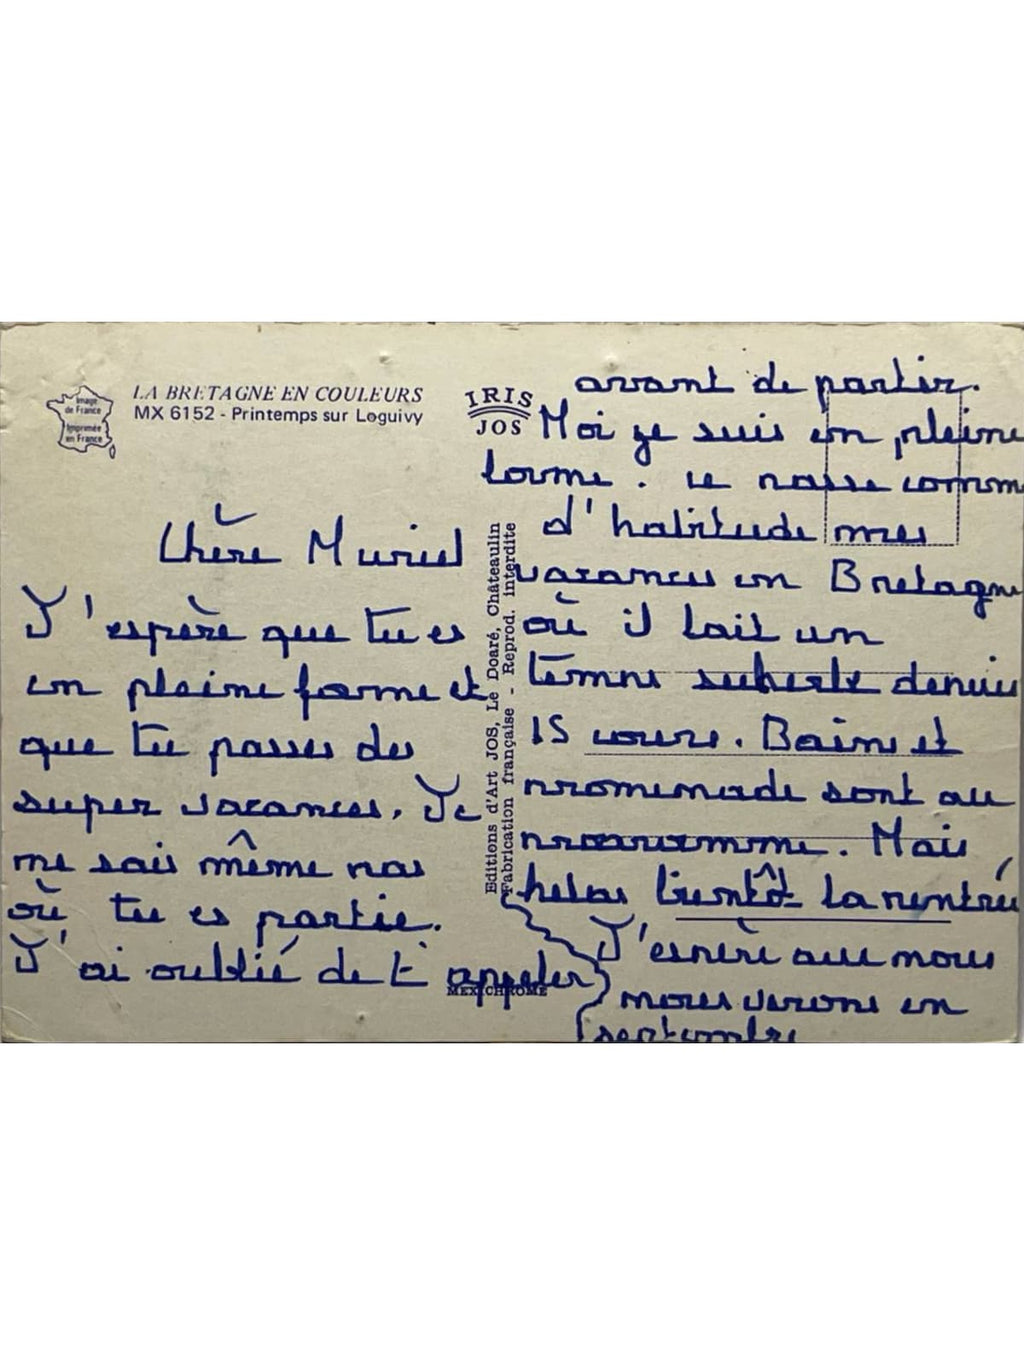 Image
de France
Imprimée
en France
LA BRETAGNE EN COULEURS
MX 6152 - Printemps sur Loguivy
IRIS
JOS
Editions d'Art JOS, Le Doaré, Châteaulin
Fabrication française - Reprod. interdite
MEXICHROME
Chère Muriel
J'espère que tu es
en pleine forme et
que tu passes des
super vacances. Je
ne sais même pas
où tu es partie.
J'ai oublié de t'appeler
avant de partir.
Moi je suis en pleine
forme. Je passe comme
d'habitude mes
vacances en Bretagne
où il fait un
temps superbe depuis
15 jours. Bains et
promenade sont au
programme. Mais
helas bientôt la rentrée
J'espère que nous
nous verrons en
septembre